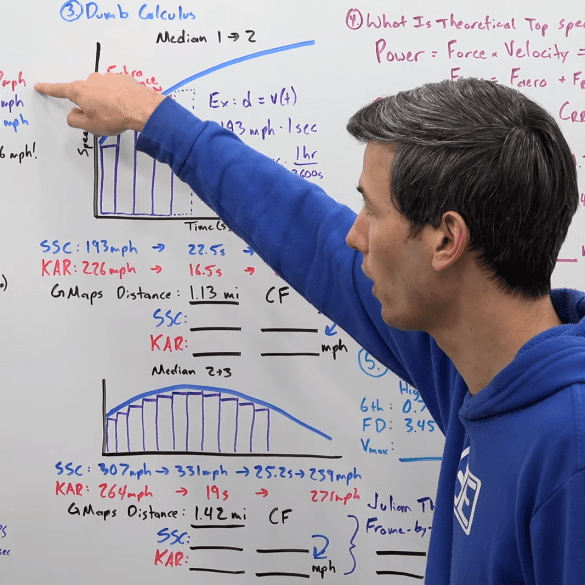 ③ Dumb Calculus
Median 1 → 2
mph
mph
mph
mph!
Extra
Ex: d = v(t)
193 mph · 1 sec
1hr
3600s
Time(s)
SSC: 193mph → 22.5s →
KAR: 226mph → 16.5s →
GMaps Distance: 1.13 mi CF
SSC:
KAR:
mph
Median 2→3
SSC: 307mph → 331mph → 25.2s → 259mph
KAR: 264mph → 19s → 271mph
GMaps Distance: 1.42 mi CF
SSC:
KAR:
mph
sec
④ What Is Theoretical Top Spee
Power = Force × Velocity =
= FAero + F
CRR
5.
6th: 0.7
FD: 3.45
Vmax:
Julian Th
Frame-by-
E